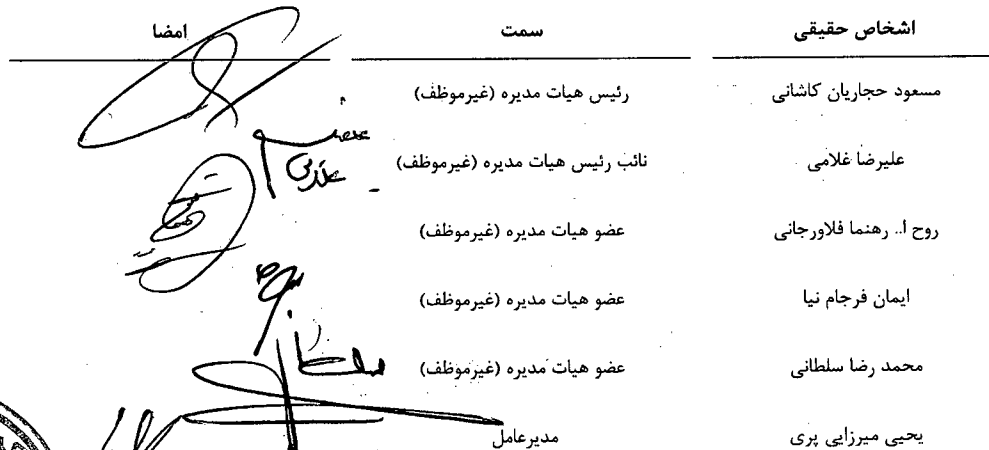 اشخاص حقیقی سمت امضا
مسعود حجاریان کاشانی رئیس هیات مدیره (غیرموظف)
علیرضا غلامی نائب رئیس هیات مدیره (غیرموظف)
روح ا.. رهنما فلاورجانی عضو هیات مدیره (غیرموظف)
ایمان فرجام نیا عضو هیات مدیره (غیرموظف)
محمد رضا سلطانی عضو هیات مدیره (غیرموظف)
یحیی میرزایی پری مدیرعامل